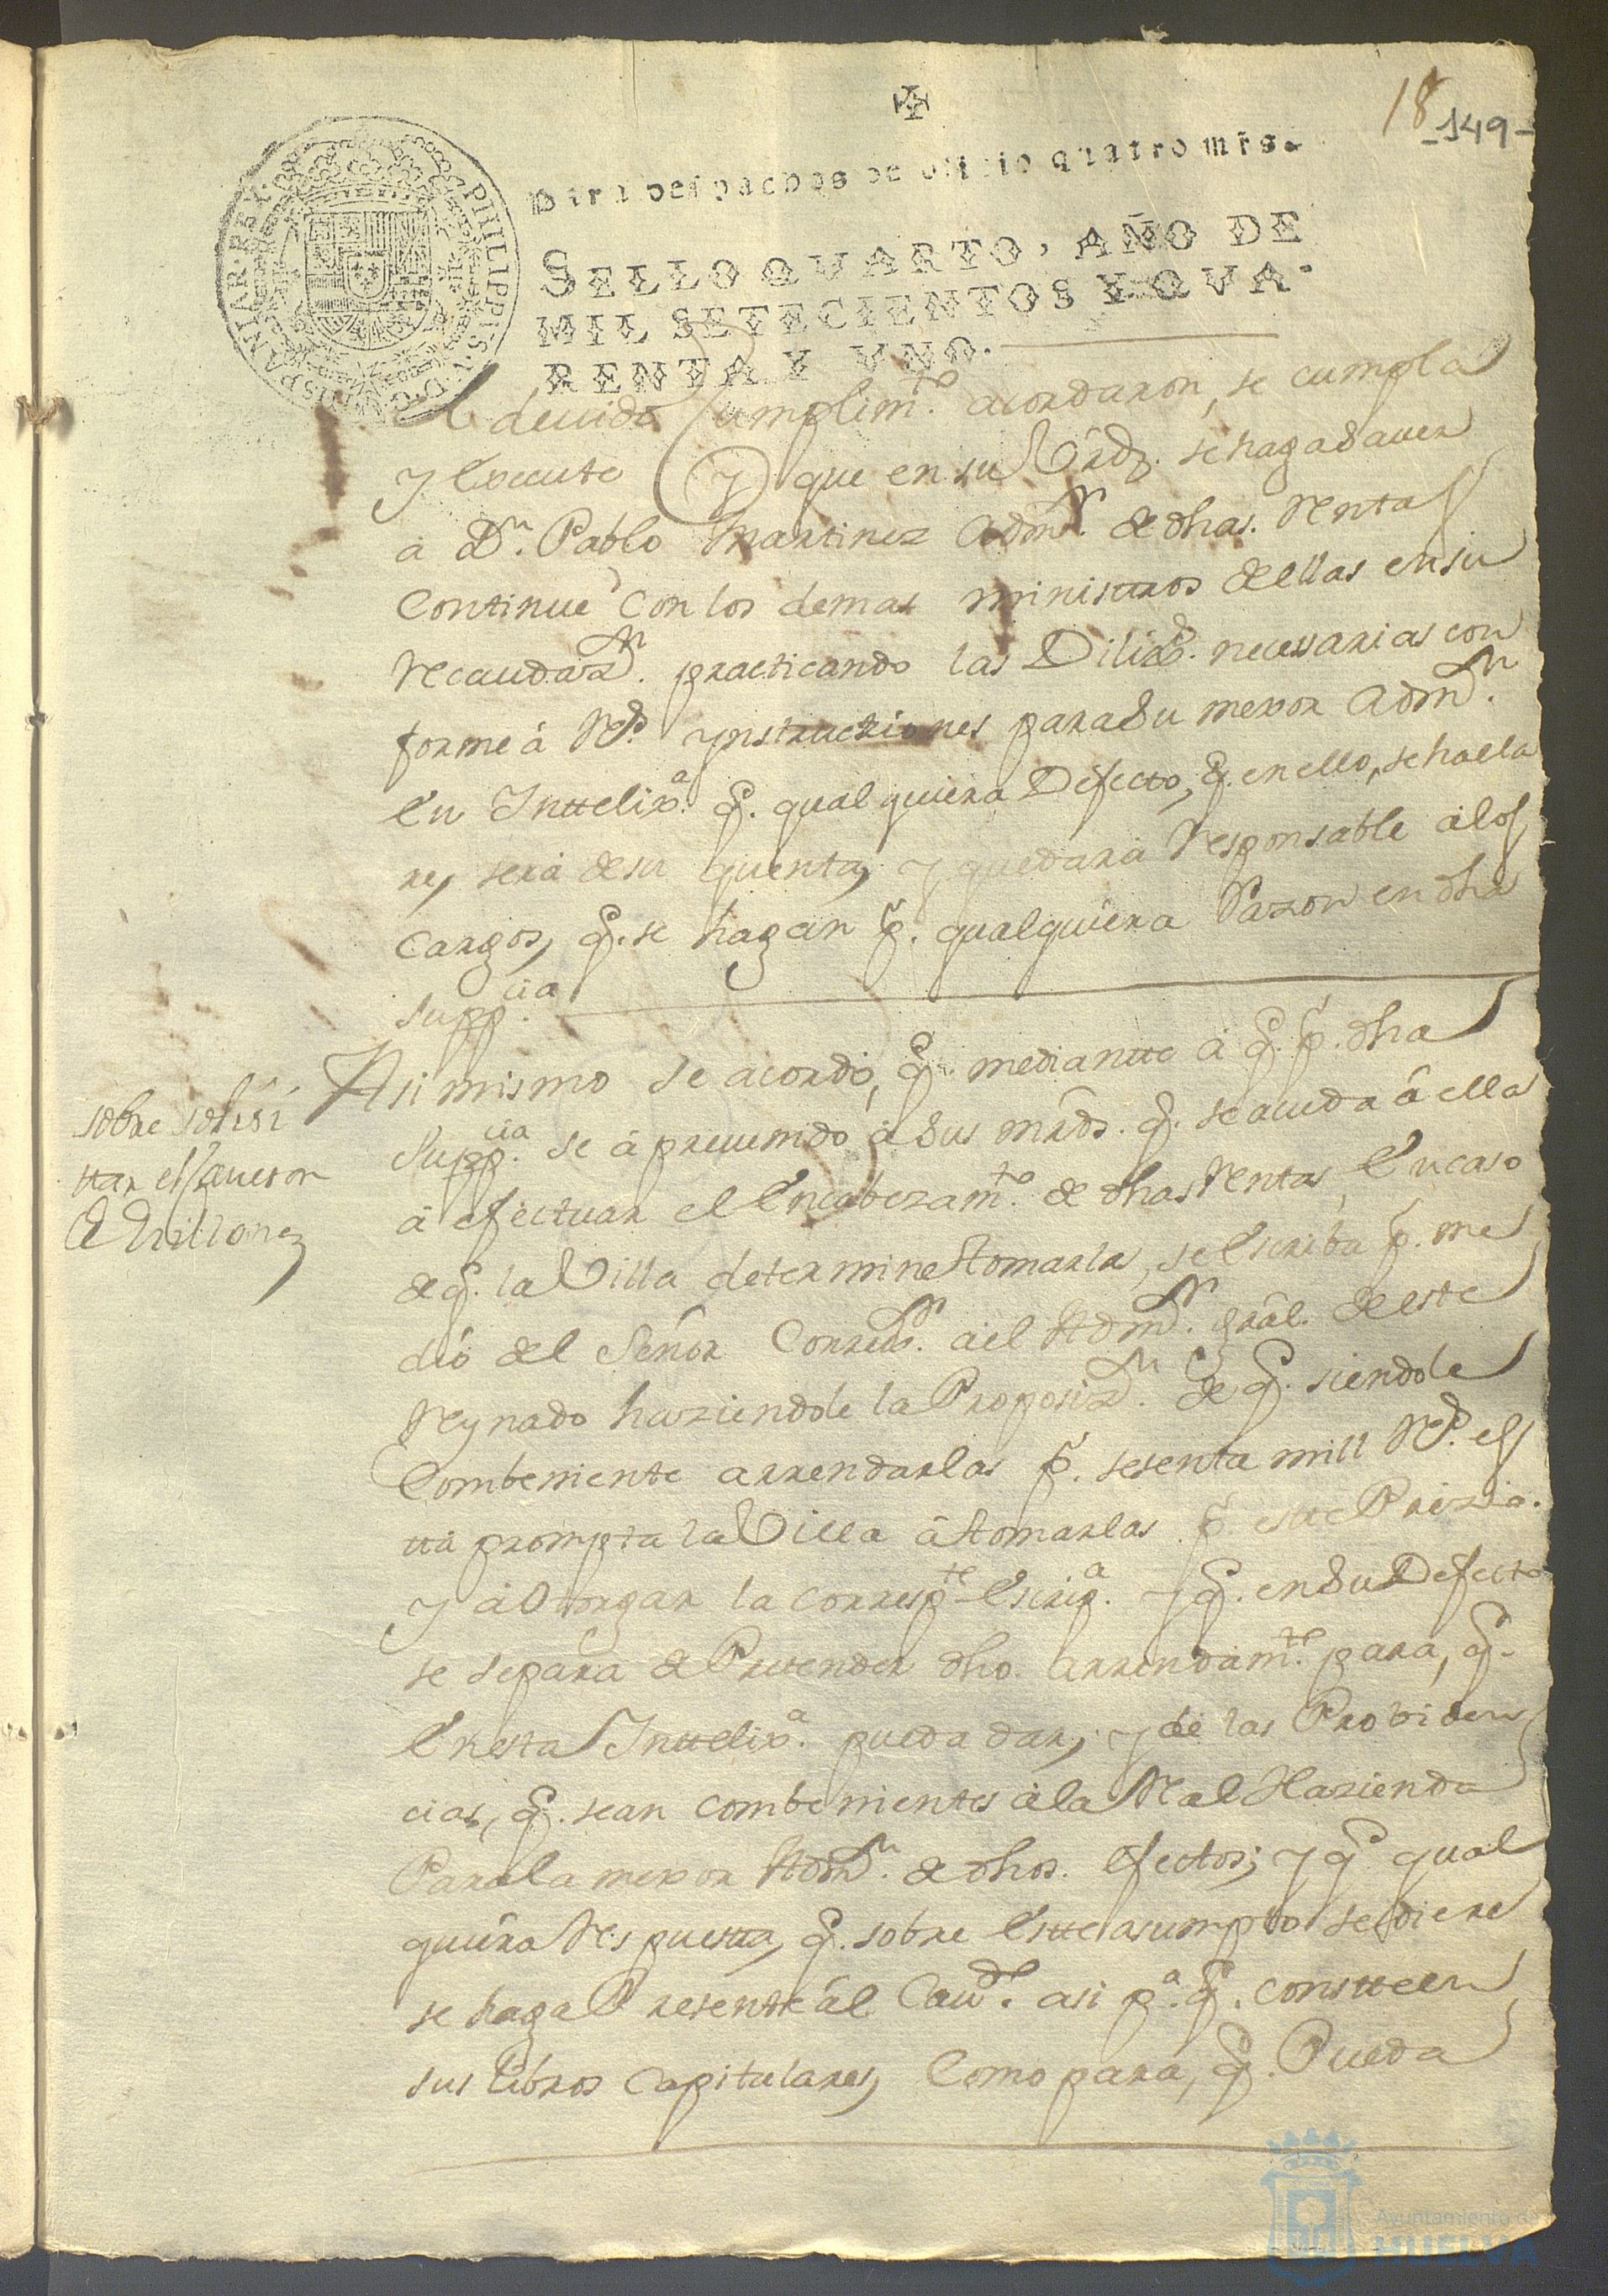 18
-149-
Para despachos de oficio quatro mrs.
SELLO QVARTO, AÑO DE
MIL SETECIENTOS Y QVA-
RENTA Y VNO.
PHILIPPVS V D G HISPANIAR REX
el deuido Cumplim.to acordaron, se cumpla
y execute Y que en su Virtd. se haga sauer
a Dn. Pablo Martinez Admor. de dhas. Rentas
Continue con los demas ministros dellas en su
Recaudazn. practicando las Diligs. necessarias con
forme á Rs. ynstrucciones para su mexor Admn.
en Inttelixa. q. qualquiera Defecto, q. en ello, se halla
re, será de su quenta, y quedara Responsable á los
cargos, q. se hagan p. qualquiera Razon en dha
Suppcia
sobre solisi
ttar el
de Millones
Asi mismo se acordó, q. mediantte á q. p. dha
Suppcia. se á preuenido á sus mrds. q. se acuda â ella
á efectuar el Encabezamto. de dhas Rentas, En caso
de q. la Villa determine tomarla, se escriba p. me
dio del Señor Corregr. áel Admr. grâl. de este
Reynado haziendole la Proposizn. de q. siendole
Combeniente arrendarlas p. sesenta mill Rs. es
tta prompta la Villa â tomarlas p. estte Prezio.
y á Otorgar la correspte. Escripa. y q. en su Defecto
se separa de Prettender dho. arrendamto. para, q.
En esta Inttelixa. pueda dar, y de las Probiden
cias, q. sean combenientes á la Real Hazienda
Para la mexor Admn. de dhos. efectos; y q. qual
quiera Respuestta, q. sobre Estte asumpto se diere
se haga Presente ál Caudo. asi pa. q. constte en
sus libros Capitulares, Como para, q. Pueda
Ayuntamiento de
HUELVA